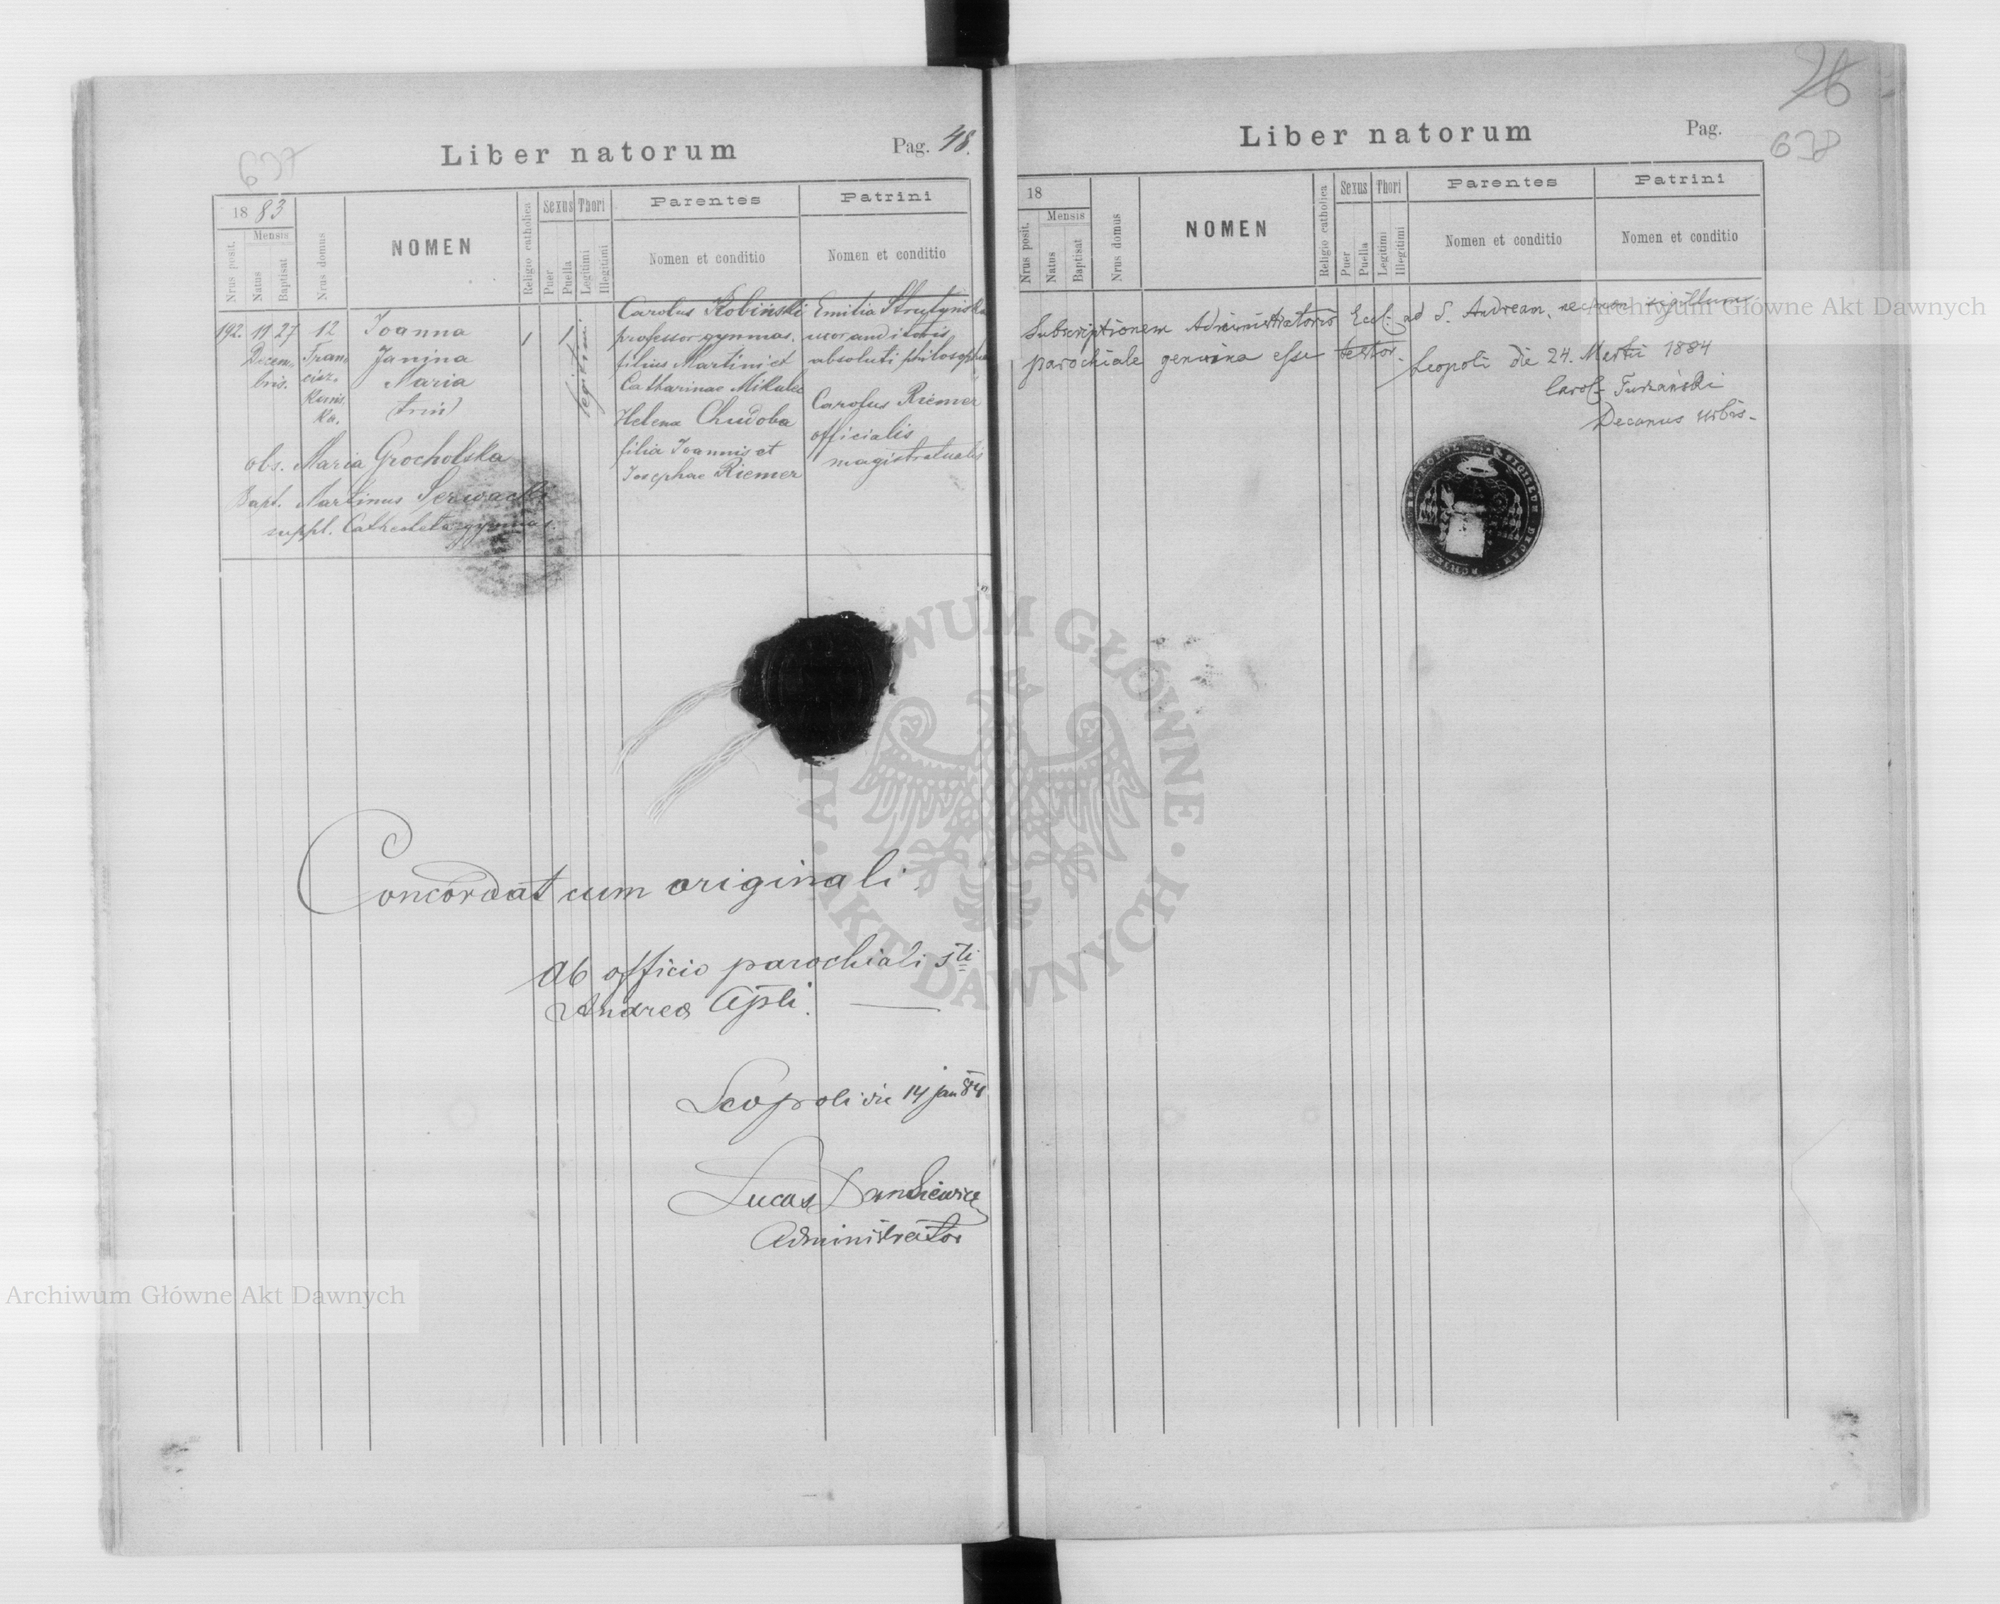 Liber natorum
Pag. 48.
637
1883
Mensis
Nrus posit.
Natus
Baptisat
Nrus domus
NOMEN
Religio catholica
Sexus
Puer
Puella
Thori
Legitimi
Illegitimi
Parentes
Nomen et conditio
Patrini
Nomen et conditio
192. 19 27 12 Joanna 1 1 legitimi
Dezem- Fran Janina
bris. cisz. Maria
Kans
ka. trin
Carolus Kobiński
professor gymnas.
filius Martini et
Catharinae Mikulec
Helena Chudoba
filia Joannis et
Josephae Riemer
Emilia Strutyńska
uxor auditoris
absoluti philosoph
Carolus Riemer
officialis
magistratualis
obs. Maria Grocholska
Bapt. Martinus Serwacki
suppl. Catecheta gymnas.
Concordat cum originali.
Ab officio parochiali sti
Andreae Apli.
Leopoli die 14 jan 84
Lucas Dankiewicz
Administrator
26
Liber natorum
Pag.
638
18
Mensis
Nrus posit.
Natus
Baptisat
Nrus domus
NOMEN
Religio catholica
Sexus
Puer
Puella
Thori
Legitimi
Illegitimi
Parentes
Nomen et conditio
Patrini
Nomen et conditio
Subscriptionem Administratoris Eccl. ad S. Andream, necnon sigillum
parochiale genuina esse testor. Leopoli die 24. Martii 1884
Carol. Turzański
Decanus Urbis
Archiwum Główne Akt Dawnych
ARCHIWUM GŁÓWNE · AKT DAWNYCH ·
Archiwum Główne Akt Dawnych